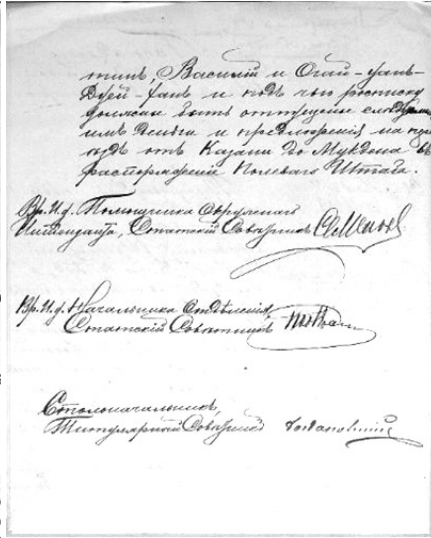 тинъ, Василій и Огай-Фанъ-
Дзей-Фанъ и подъ чью росписку
должны быть отпущены слѣдуемыя
имъ деньги и предложенія на про-
ѣздъ отъ Казани до Мукдена въ
распоряженіе Полеваго Штаба.
Вр. И. д. Помощника Окружнаго
Интенданта, Статскій Совѣтникъ
Вр. И. д. Начальника Отдѣленія,
Статскій Совѣтникъ
Столоначальникъ,
Титулярный Совѣтникъ